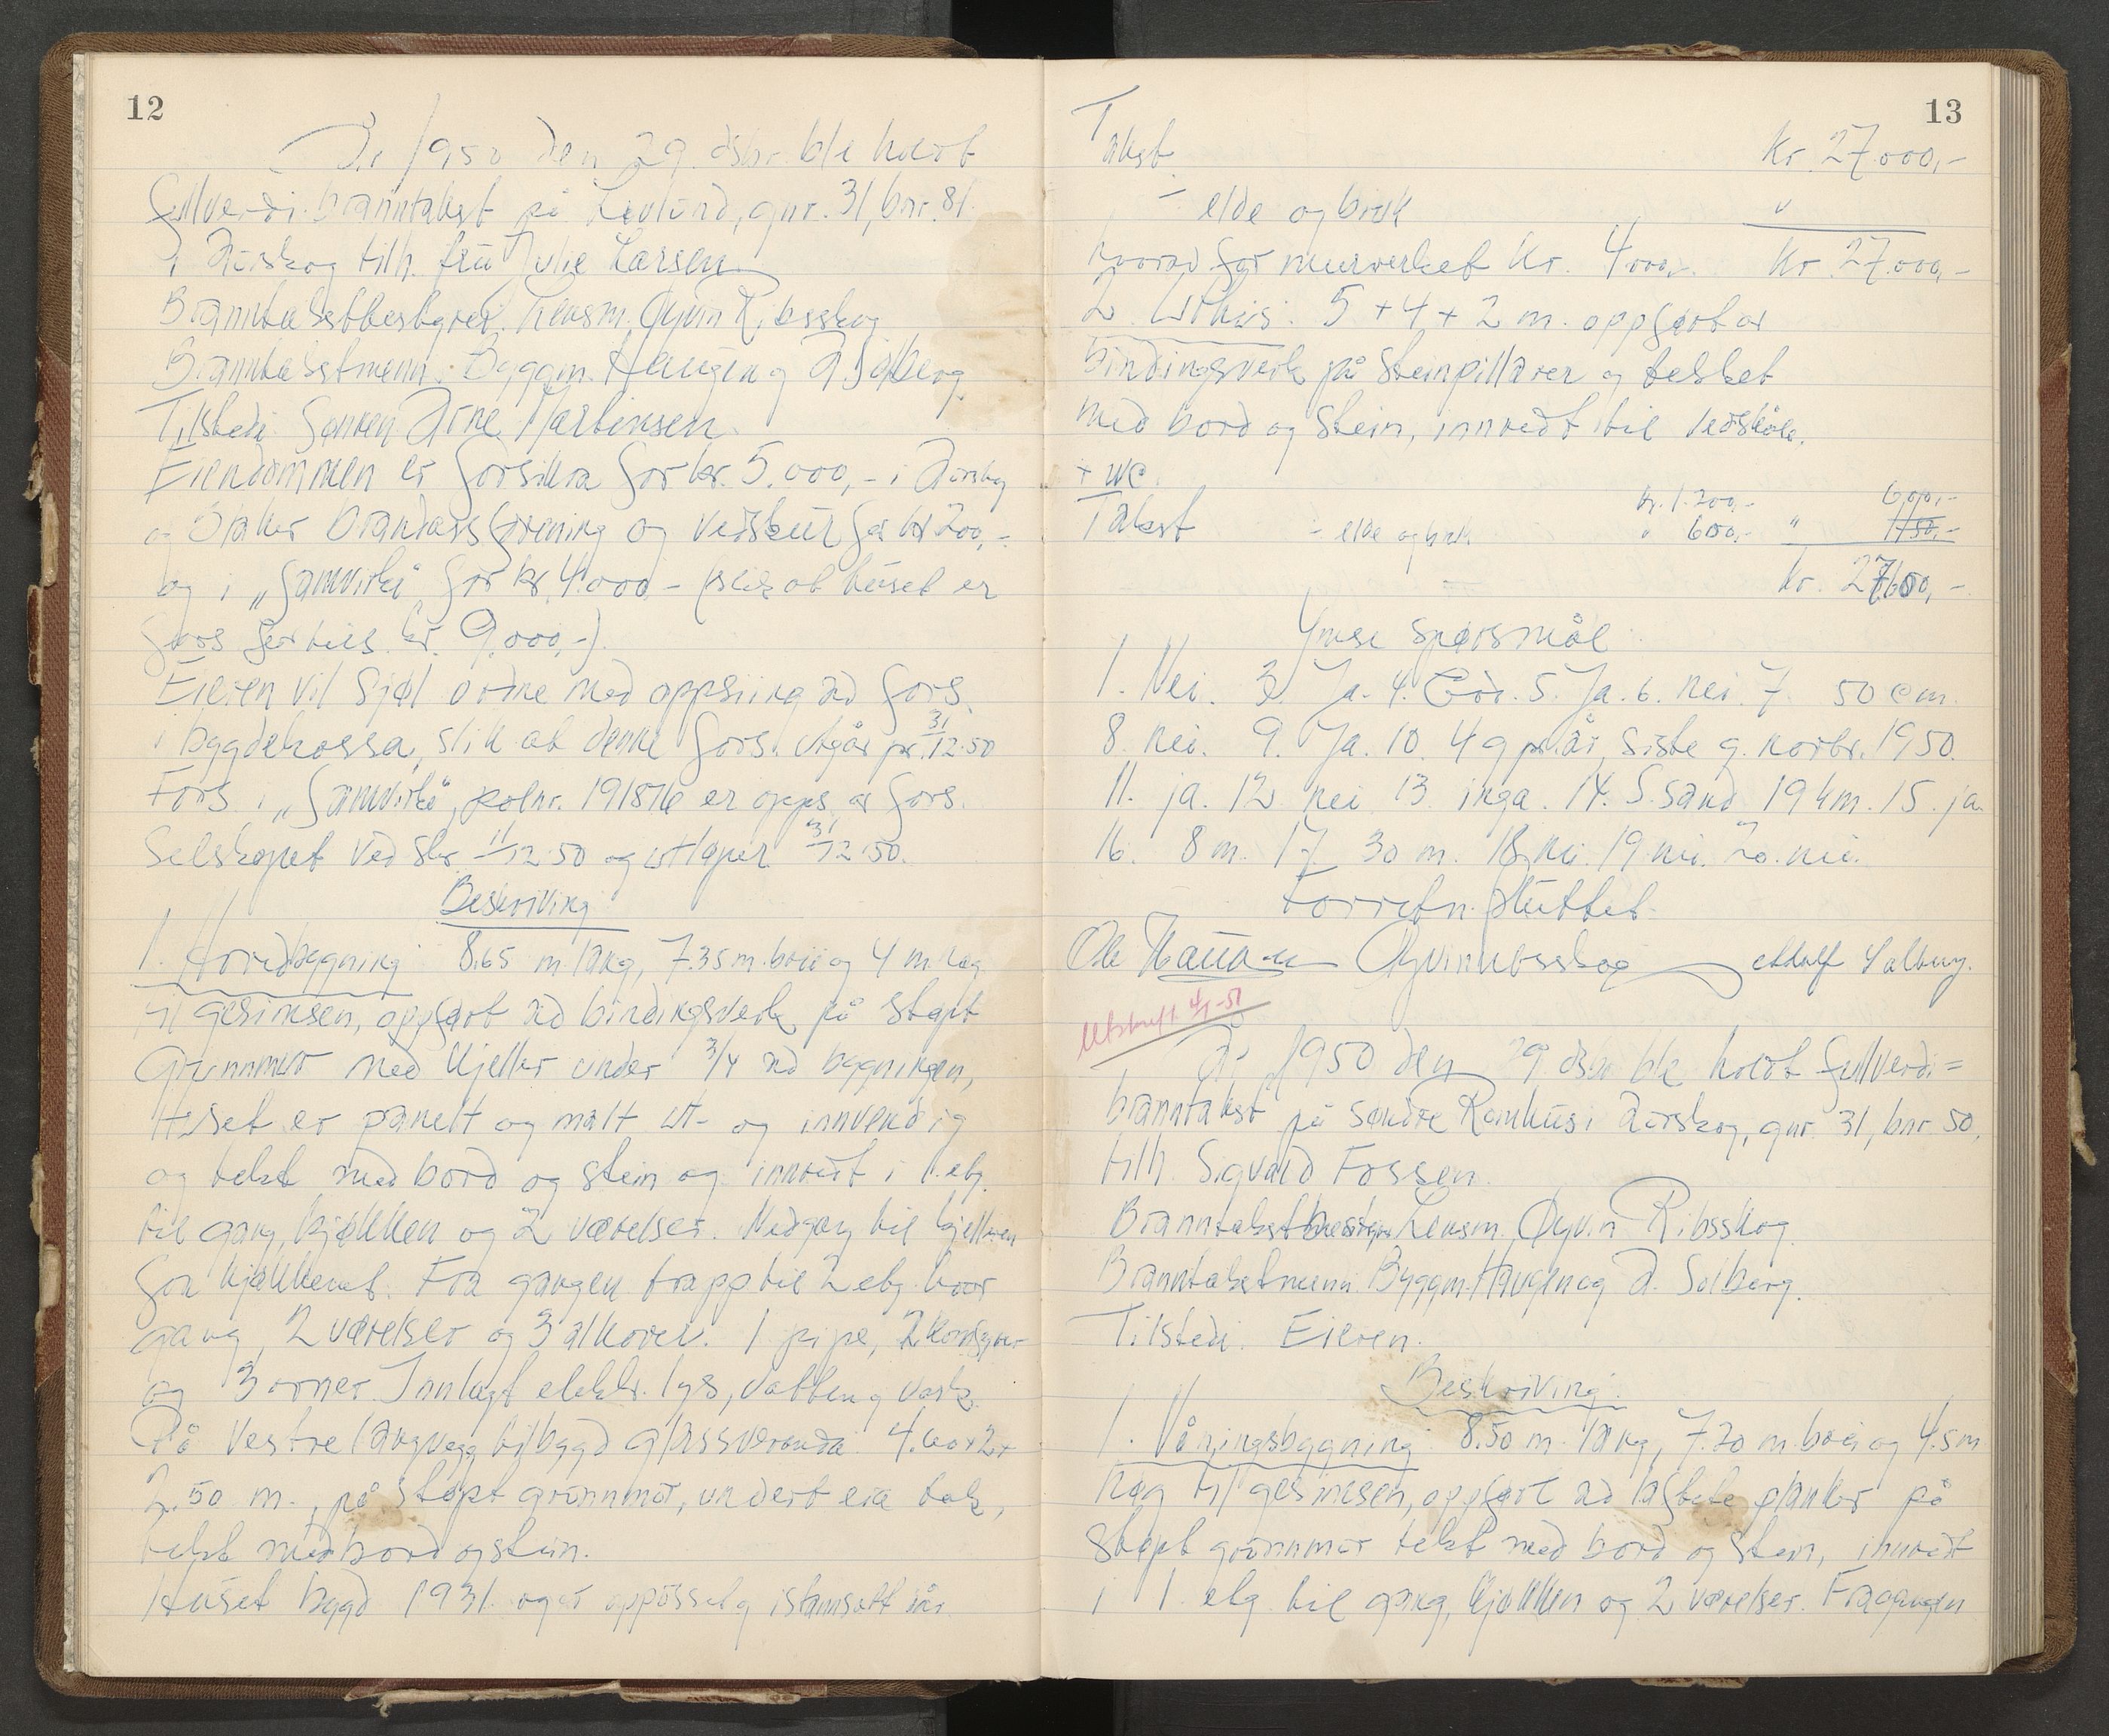 12
År 1950 den 29. dsbr. ble holdt
fullverdi branntakst på Løvlund, gnr. 31, bnr. 81
i Aurskog tilh. fru Julie Larsen
Branntakstbestyrer: Lensm. Øyvin Ribsskog
Branntakstmenn: Byggm. Haugen og A. Solberg
Tilstede: Sønnen Arne Martinsen
Eiendommen er forsikra for kr. 5.000,- i Aurskog
og Blaker brandassforening og vedskur for kr 200,-
og i „Samvirke" for kr. 4.000,- (slik at huset er
fors. for tils. kr. 9.000,-).
Eieren vil sjøl ordne med oppsiing av fors.
i bygdekassa, slik at denne fors. utgår pr. 31/12-50
Fors. i „Samvirke", polnr. 191876 er opps. av fors.
selskapet ved skr. 11/12-50 og utløper 31/12-50.
Beskriving
1. Hovedbygning 8.65 m lang, 7.35 m. brei og 4 m. høg
til gesimsen, oppført av bindingsverk på støpt
grunnmur med kjeller under 3/4 av bygningen,
Huset er panelt og malt ut- og innvendig
og tekt med bord og stein og innredt i 1. etg.
til gang, kjøkken og 2 værelser. Nedgang til kjelleren
fra kjøkkenet. Fra gangen trapp til 2 etg. hvor
gang, 2 værelser og 3 alkover. 1 pipe, 2
og 3 ovner. Innlagt elektr. lys, vatten og vask.
På vestre langvegg tilbygd glassveranda 4.60 x 2 x
2.50 m., på støpt grunnmur, under eie tak,
tekt med bord og stein.
Huset bygd 1931. og er oppusset og istandsatt i år.
13
Takst Kr. 27.000,-
- elde og bruk "
hvorav for murverket kr. 4.000,- Kr. 27.000,-
2. Uthus: 5 + 4 + 2 m. oppført av
bindingsverk på steinpillarer og tekket
med bord og stein, innredt til vedskåle
+ wc.
Takst kr. 1.200,- 600,-
- elde og bruk " 600,- " 1150,-
kr. 27600,-
Ymse spørsmål:
1. Nei. 3. Ja. 4. God. 5. Ja. 6. nei. 7. 50 cm.
8. nei. 9. Ja. 10. 4 g pr. år, siste g. novbr. 1950.
11. ja. 12. nei 13. inga. 14. S. sand 194 m. 15. ja.
16. 8 m. 17. 30 m. 18. nei. 19. nei. 20. nei.
Forretn. sluttet.
Ole Haugen Øyvin Ribsskog Adolf Solberg.
Utskrift 4/1-51
År 1950 den 29. dsbr. ble holdt fullverdi=
branntakst på søndre Romhus i Aurskog, gnr. 31, bnr. 50,
tilh. Sigvald Fossen.
Branntakstbestyrer Lensm. Øyvin Ribsskog.
Branntakstmenn Byggm. Haugen og A. Solberg.
Tilstede: Eieren.
Beskriving:
1. Våningsbygning 8.50 m. lang, 7.20 m. brei og 4.5 m
høg til gesimsen, oppført av laftete planker på
støpt grunnmur tekt med bord og stein, innredt
i 1. etg til gang, kjøkken og 2 værelser. Fra gangen